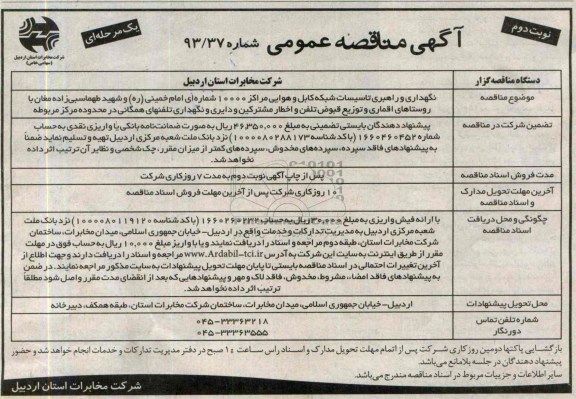 نوبت دوم
آگهی مناقصه عمومی شماره ۹۳/۳۷
یک مرحله‌ای
شرکت مخابرات استان اردبیل
(سهامی خاص)
دستگاه مناقصه‌گزار
شرکت مخابرات استان اردبیل
موضوع مناقصه
نگهداری و راهبری تاسیسات شبکه کابل و هوایی مراکز ۱۰۰۰۰ شماره‌ای امام خمینی (ره) و شهید طهماسبی‌زاده مغان با
روستاهای اقماری و توزیع قبوض تلفن و اخطار مشترکین و دایری و نگهداری تلفنهای همگانی در محدوده مرکز مربوطه
تضمین شرکت در مناقصه
پیشنهاد دهندگان بایستی تضمینی به مبلغ ۴۶,۳۵۰,۰۰۰ ریال به صورت ضمانت‌نامه بانکی یا واریزی نقدی به حساب
شماره ۱۶۶۰۴۶۰۴۵۲ (با کد شناسه ۱۰۰۰۰۸۰۴۲۸۸۱۷۳) نزد بانک ملت شعبه مرکزی اردبیل تهیه و تسلیم نماید ضمناً
به پیشنهادهای فاقد سپرده، سپرده‌های مخدوش، سپرده‌های کمتر از میزان مقرر، چک شخصی و نظایر آن ترتیب اثر داده
نخواهد شد.
مدت فروش اسناد مناقصه
پس از چاپ آگهی نوبت دوم به مدت ۷ روز کاری شرکت
آخرین مهلت تحویل مدارک
و اسناد مناقصه
۱۰ روز کاری شرکت پس از آخرین مهلت فروش اسناد مناقصه
چگونگی و محل دریافت
اسناد مناقصه
با ارائه فیش واریزی به مبلغ ۳۰۰,۰۰۰ ریال به حساب (با کد شناسه ۱۰۰۰۰۸۰۱۱۹۱۲) نزد بانک ملت
شعبه مرکزی اردبیل به مدیریت تدارکات و خدمات واقع در اردبیل - خیابان جمهوری اسلامی، میدان مخابرات، ساختمان
شرکت مخابرات استان، طبقه دوم مراجعه و اسناد را دریافت نمایند و یا با واریز مبلغ ۱۰,۰۰۰ ریال به حساب فوق در مهلت
مقرر از طریق اینترنت به سایت این شرکت به آدرس www.Ardabil-tci.ir مراجعه و اسناد را دریافت دارند و جهت اطلاع از
آخرین تغییرات احتمالی در اسناد مناقصه بایستی تا پایان مهلت تحویل پیشنهادات به سایت مذکور مراجعه نمایند. در ضمن
به پیشنهادهای فاقد امضاء، مشروط، مخدوش، فاقد لاک و مهر و پیشنهادهایی که بعد از انقضای مدت مقرر واصل شود مطلقاً
ترتیب اثر داده نخواهد شد.
محل تحویل پیشنهادات
اردبیل- خیابان جمهوری اسلامی، میدان مخابرات، ساختمان شرکت مخابرات استان، طبقه همکف، دبیرخانه
شماره تلفن تماس
دورنگار
۰۴۵-۳۳۳۶۳۲۱۸
۰۴۵-۳۳۳۶۳۵۵۵
بازگشایی پاکتها دومین روز کاری شرکت پس از اتمام مهلت تحویل مدارک و اسناد راس ساعت ۱۰ صبح در دفتر مدیریت تدارکات و خدمات انجام خواهد شد و حضور
پیشنهاد دهندگان در جلسه بلامانع می‌باشد.
سایر اطلاعات و جزییات مربوط در اسناد مناقصه مندرج می‌باشد.
شرکت مخابرات استان اردبیل